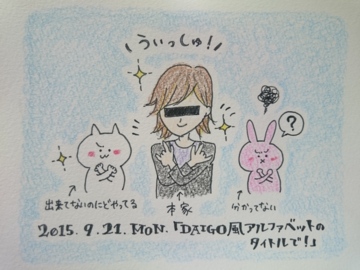 \うぃっしゅ!/
?
出来てないのにどやってる
本家
分かってない
2015.9.21.MON.「DAIGO風アルファベットの
タイトルで!」